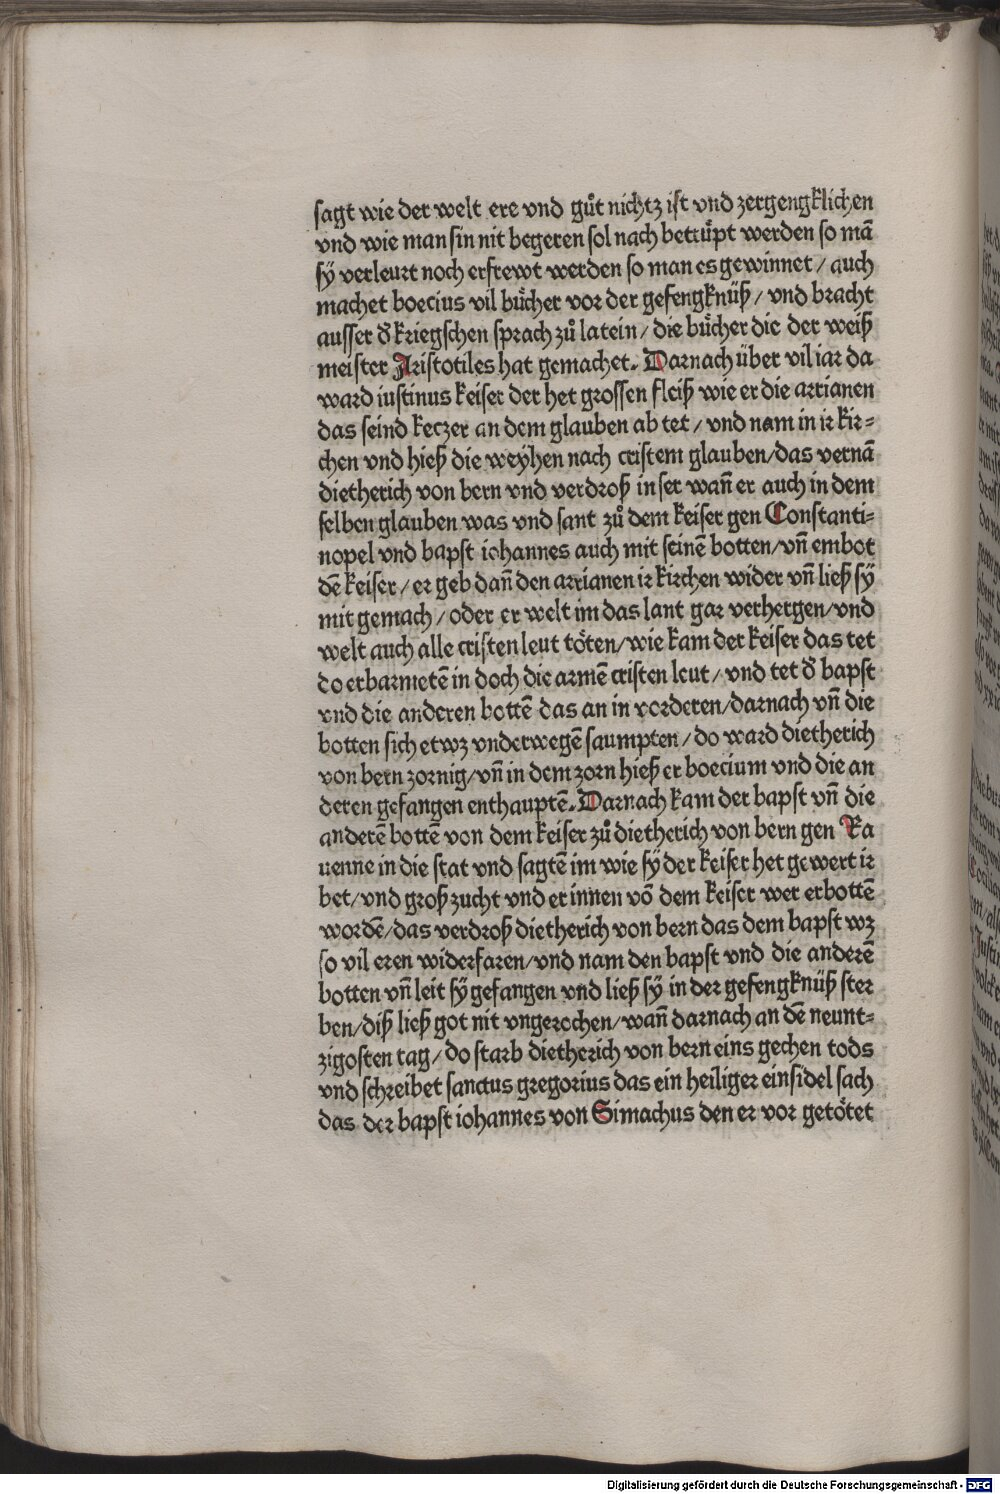 sagt wie der welt ere vnd guͦt nichtz ist vnd zergengklichen
vnd wie man sin nit begeren sol nach betruͤpt werden so mā
sÿ verleurt noch erfrewt werden so man es gewinnet / auch
machet boecius vil buͤcher vor der gefengknüß / vnd bracht
ausser d̕ kriegschen sprach zuͦ latein / die buͤcher die der weiß
meister Aristotiles hat gemachet. Darnach über vil iar da
ward iustinus keiser der het grossen fleiß wie er die arrianen
das seind keczer an dem glauben ab tet / vnd nam in ir kir=
chen vnd hieß die weÿhen nach cristem glauben / das vernā
dietherich von bern vnd verdroß in ser wañ er auch in dem
selben glauben was vnd sant zuͦ dem keiser gen Constanti=
nopel vnd bapst iohannes auch mit seinē botten / vñ embot
dē keiser / er geb dañ den arrianen ir kirchen wider vñ ließ sÿ
mit gemach / oder er welt im das lant gar verhergen / vnd
welt auch alle cristen leut toͤten / wie kam der keiser das tet
do erbarmetē in doch die armē cristen leut / vnd tet d̕ bapst
vnd die anderen bottē das an in vorderen / darnach vñ die
botten sich etwz vnderwegē saumpten / do ward dietherich
von bern zornig / vñ in dem zorn hieß er boecium vnd die an
deren gefangen enthauptē. Darnach kam der bapst vñ die
anderē bottē von dem keiser zuͦ dietherich von bern gen Ra
uenne in die stat vnd sagtē im wie sÿ der keiser het gewert ir
bet / vnd groß zucht vnd er innen vō dem keiser wer erbottē
wordē / das verdroß dietherich von bern das dem bapst wz
so vil eren widerfaren / vnd nam den bapst vnd die anderē
botten vñ leit sÿ gefangen vnd ließ sÿ in der gefengknüß ster
ben / diß ließ got nit vngerochen / wañ darnach an dē neunt=
zigosten tag / do starb dietherich von bern eins gechen tods
vnd schreibet sanctus gregorius das ein heiliger einsidel sach
das der bapst iohannes von Simachus den er vor getoͤtet
Digitalisierung gefördert durch die Deutsche Forschungsgemeinschaft - DFG